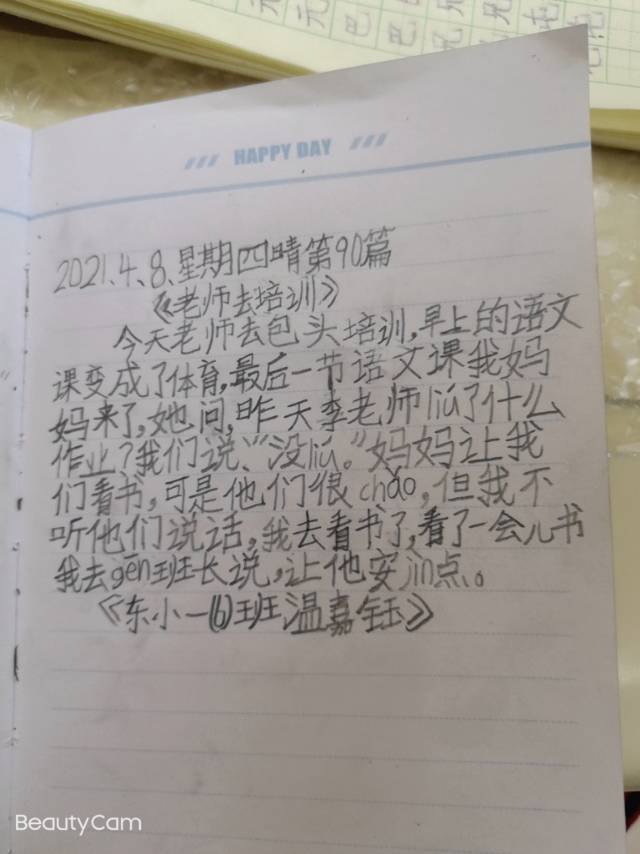 元
元
巴
巴
兄
兄
屯
HAPPY DAY
2021、4、8、星期四晴第90篇
《老师去培训》
今天老师去包头培训,早上的语文
课变成了体育,最后一节语文课我妈
妈来了,她问,昨天李老师liú了什么
作业?我们说、“没liú。”妈妈让我
们看书,可是他们很cháo,但我不
听他们说话,我去看书了,看了一会儿书
我去gēn班长说,让他安jìn点。
《东小一(6)班温嘉钰》
BeautyCam